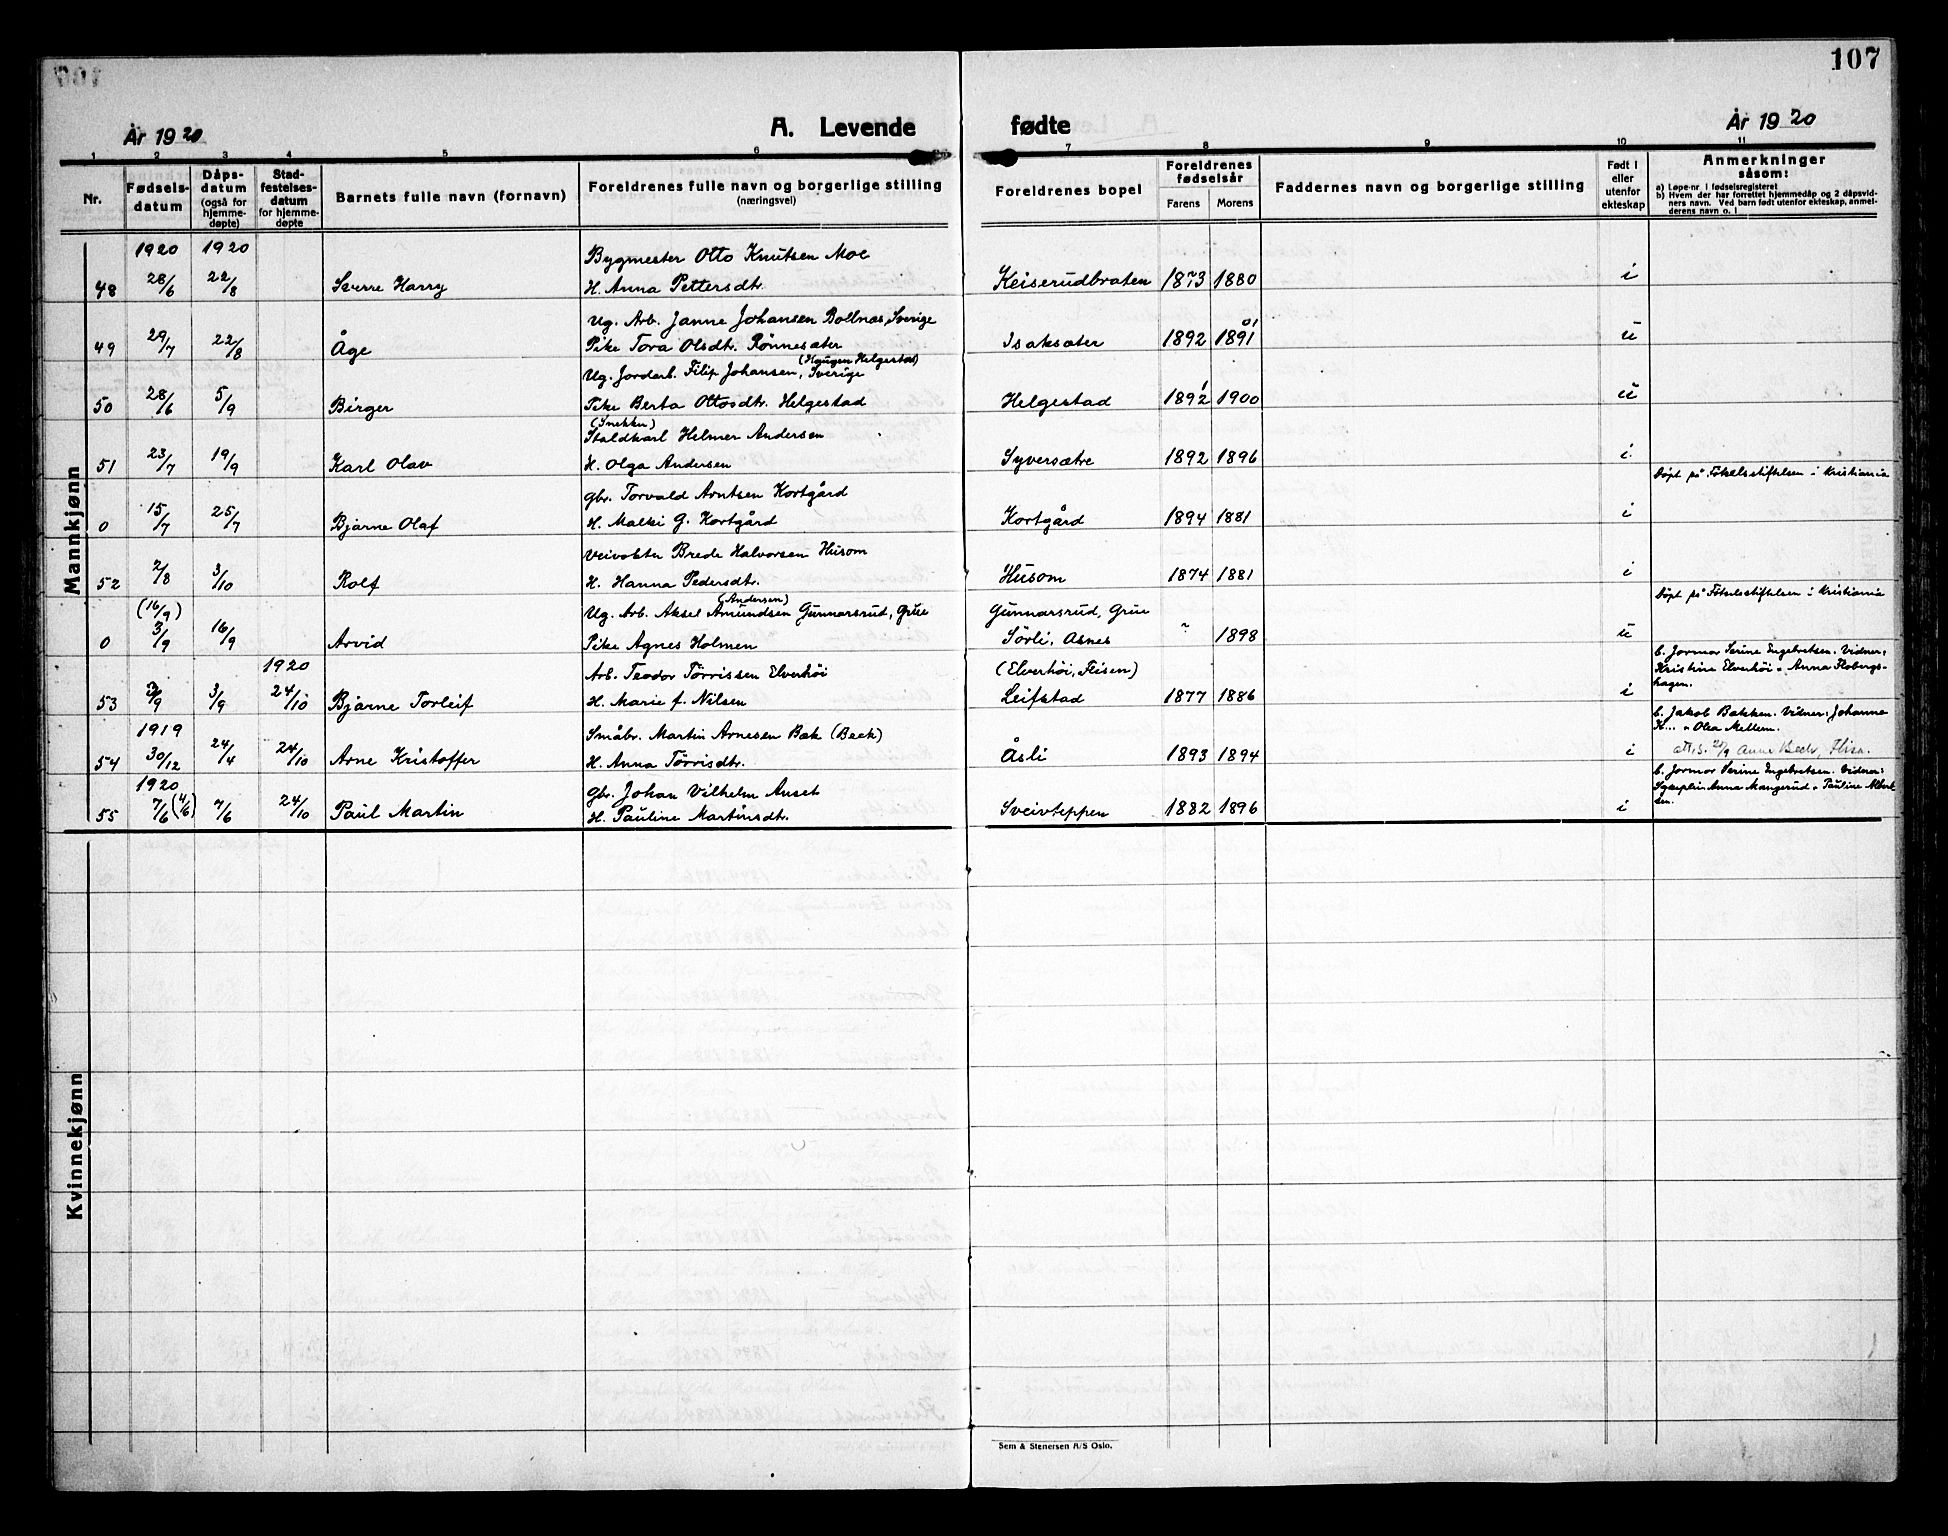 107
År 1920
A. Levende fødte
År 1920
1 2 3 4 5 6 7 8 9 10 11
Nr.
Fødselsdatum
Dåpsdatum (også for hjemmedøpte)
Stadfestelsesdatum for hjemmedøpte
Barnets fulle navn (fornavn)
Foreldrenes fulle navn og borgerlige stilling (næringsvei)
Foreldrenes bopel
Foreldrenes fødselsår
Farens Morens
Faddernes navn og borgerlige stilling
Født i eller utenfor ekteskap
Anmerkninger såsom:
a) Løpe-nr. i fødselsregisteret
b) Hvem der har forrettet hjemmedåp og 2 dåpsvidners navn. Ved barn født utenfor ekteskap, anmelderens navn o. l
Mannkjønn
1920 1920 Bygmester Otto Knutsen Moe
48 28/6 22/8 Sverre Harry H. Anna Pettersdtr. Keiserudbraten 1873 1880 i
Ug. Arb. Janne Johansen Bollnäs, Sverige
49 29/7 22/8 Åge Pike Tora Olsdtr. Rønnesæter Isaksæter 1892 1891 u
Ug. Jordarb. Filip Johansen, (Haugen Helgestad) Sverige
50 28/6 5/9 Birger Pike Berta Ottosdtr. Helgestad Helgestad 1892 1900 u
(Snekker)
Staldkarl Helmer Andersen
51 23/7 19/9 Karl Olav H. Olga Andersen Syversætre 1892 1896 i
Døpt på Fødselsstiftelsen i Kristiania
gbr. Torvald Arntsen Kortgård
0 15/7 25/7 Bjarne Olaf H. Malki G. Kortgård Kortgård 1894 1881 i
Veivokter Brede Halvorsen Husom
52 2/8 3/10 Rolf H. Hanna Pedersdtr. Husom 1874 1881 i
Døpt på Fødselsstiftelsen i Kristiania
(16/9) Ug. Arb. Aksel Amundsen (Andersen) Gunnarsrud, Grue Gunnarsrud, Grue
0 3/9 16/9 Arvid Pike Agnes Holmen Sörli, Åsnes 1898 u
1920 Arb. Teodor Törrissen Elverhöi (Elverhöi, Flisen)
b. Jormor Serine Engebretsen. Vidner: Kristine Elverhöi Anna Flobergshagen.
53 2/9 3/9 24/10 Bjarne Torleif H. Marie f. Nilsen Leifstad 1877 1886 i
1919 Småbr. Martin Arnesen Bak (Beck)
b. Jakob Bakken. Vidner: Johanne H... " Olea Mellem.
54 30/12 24/4 24/10 Arne Kristoffer H. Anna Törrisdtr. Åsli 1893 1894 i
att. s. 2/9 Anne Beck, Flisa.
1920 gbr. Johan Vilhelm Anset
b. Jormor Serine Engebretsen. Vidner: Sykeplrin Anna Mangerud " Pauline Albertsen.
55 7/6 (4/6) 7/6 24/10 Paul Martin H. Pauline Martinsdtr. Sveivteppen 1882 1896 i
Kvinnekjønn
Sem & Stenersen A/S Oslo.